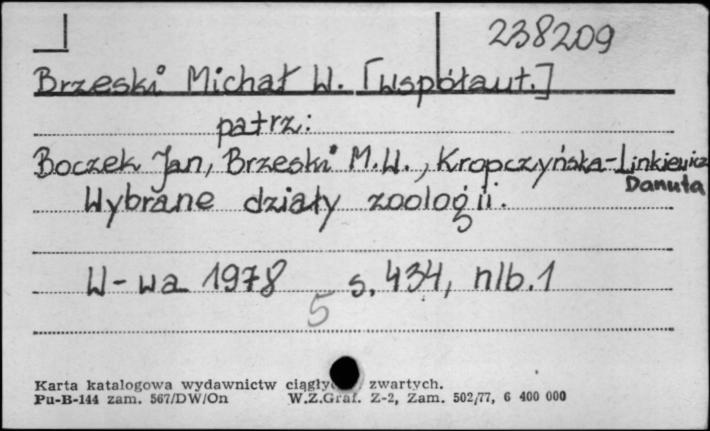 238209
Brzeski Michał W. [Współaut.]
patrz:
Boczek Jan, Brzeski M.W., Kropczyńska-Linkiewicz
Danuta
Wybrane działy zoologii.
W-wa 1978 s. 434, nlb. 1
5
Karta katalogowa wydawnictw zwartych.
Pu-B-144 zam. 567/DW/On W.Z.Graf. Z-2, Zam. 502/77, 6 400 000